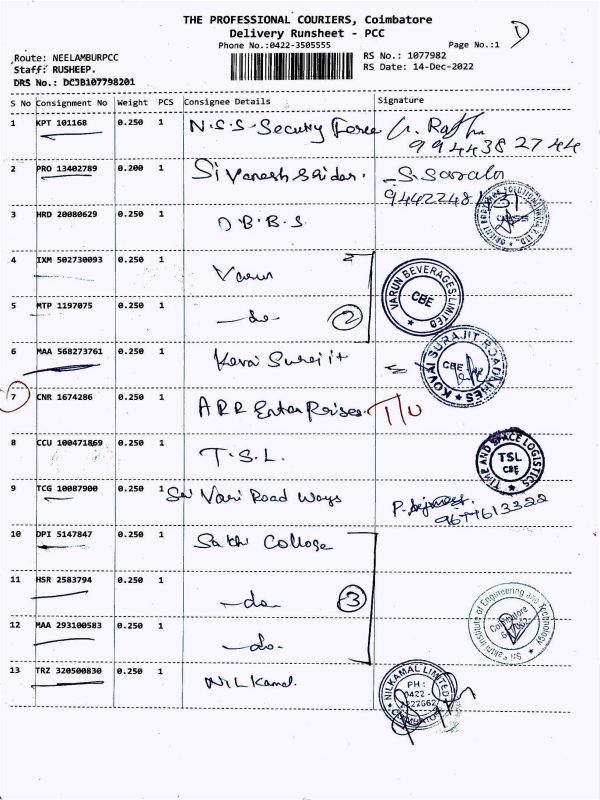 THE PROFESSIONAL COURIERS, Coimbatore
Delivery Runsheet - PCC
Phone No.:0422-3505555
Page No.:1 D
Route: NEELAMBURPCC
RS No.: 1077982
Staff: RUSHEEP.
RS Date: 14-Dec-2022
DRS No.: DCJB107798201
S No Consignment No Weight PCS Consignee Details Signature
1 KPT 101168 0.250 1 N.S.S-Security Force
99443 82744
2 PRO 13402789 0.200 1 Sivanesh Saidar. S. Sarala
94422481
3 HRD 20080629 0.250 1 O.B.B.S.
4 IXM 502730093 0.250 1 Varun
VARUN BEVERAGES LIMITED
CBE
5 MTP 1197075 0.250 1 -do- 2
6 MAA 568273761 0.250 1 Kovai Surajit
KOVAI SURAJIT ROADLINES
CBE
7 CNR 1674286 0.250 1 ARR Enterprises T/U
8 CCU 100471869 0.250 1 T.S.L.
TIME AND SPACE LOGISTICS
TSL
CBE
9 TCG 10087900 0.250 1 Sri Vari Road Ways
9677613322
10 DPI 5147847 0.250 1 Sakthi College
11 HSR 2583794 0.250 1 -do- 3
Sri Sakthi Institute of Engineering and Technology
Coimbatore
12 MAA 293100583 0.250 1 -do-
13 TRZ 320500830 0.250 1 Nilkamal
NILKAMAL LIMITED
PH :
0422 -
COIMBATORE